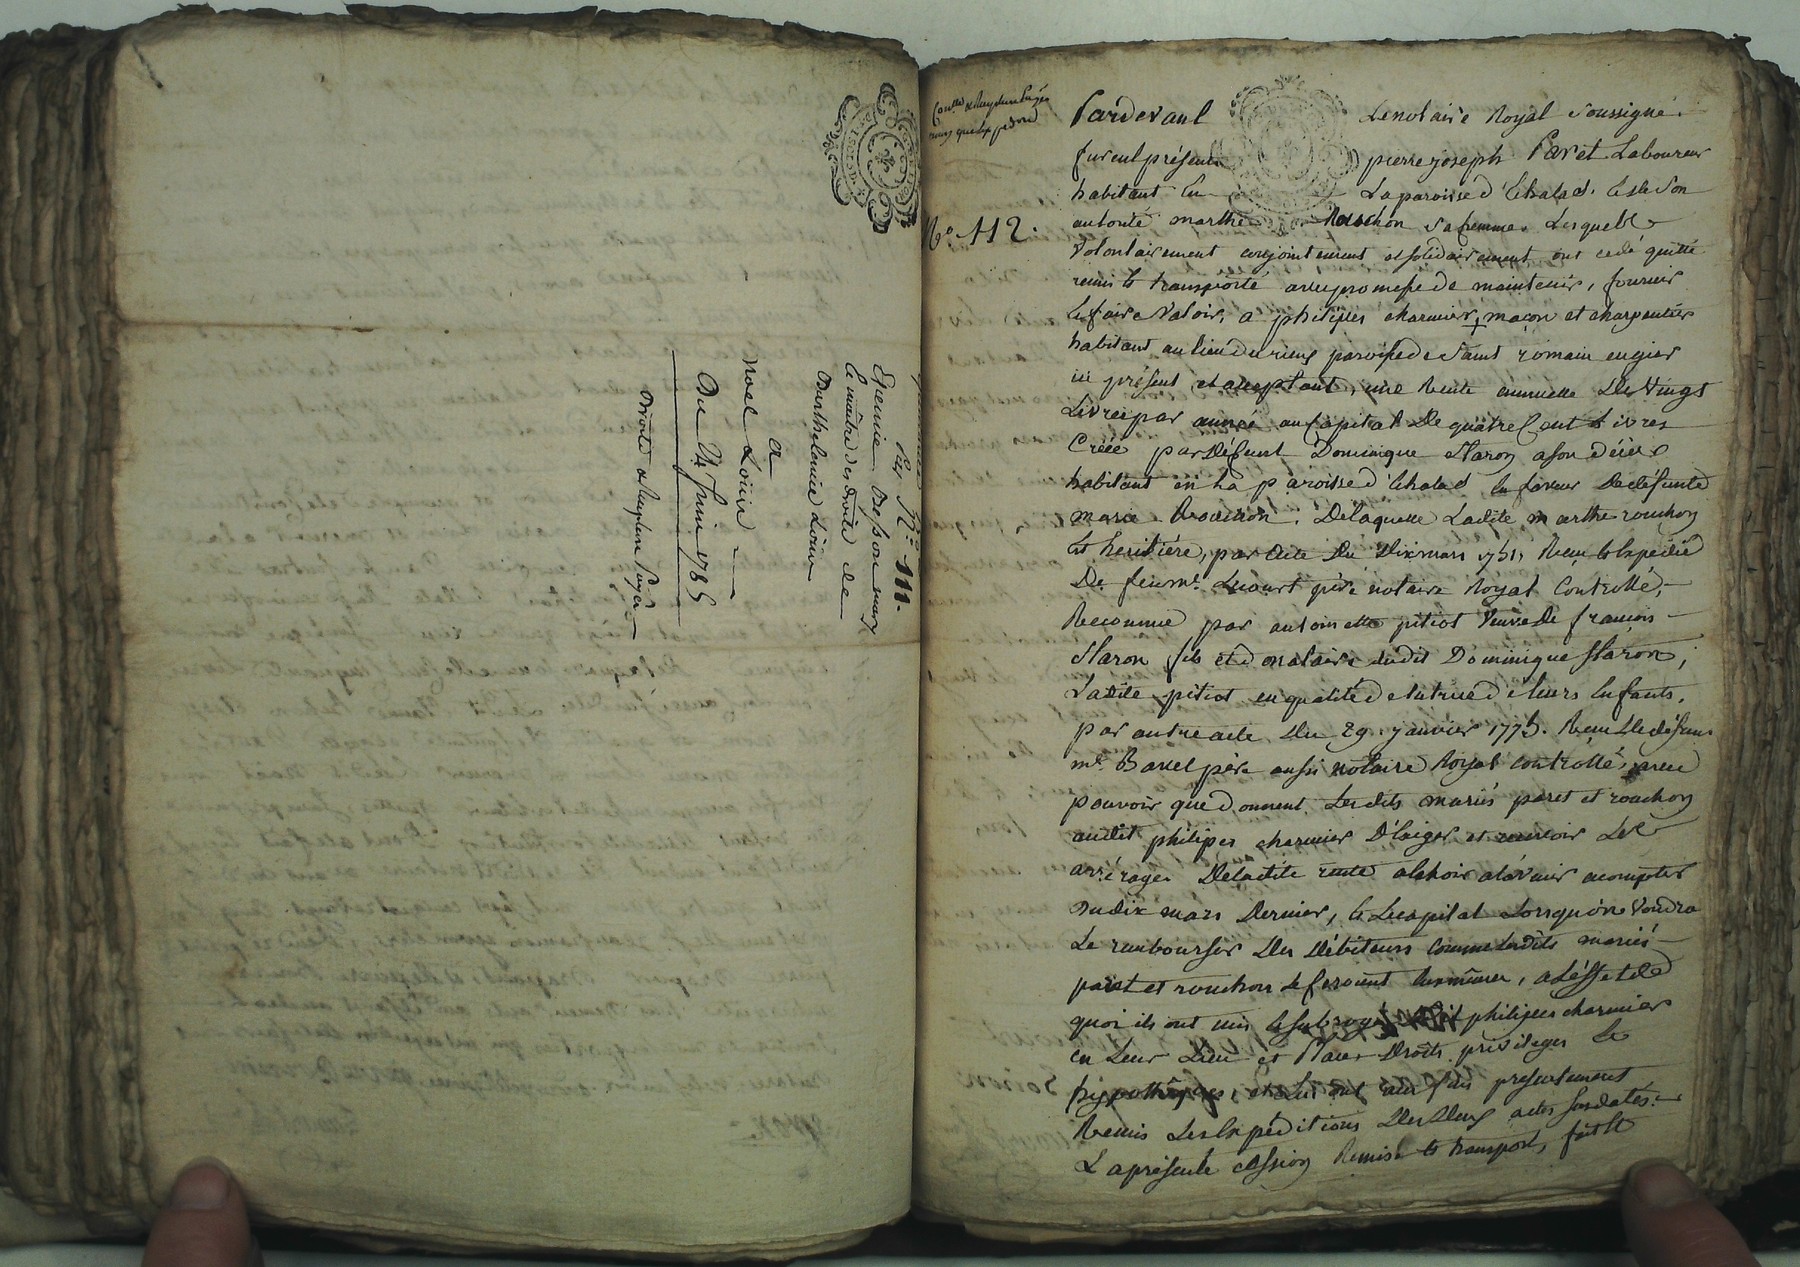 Les N.° 111.
Etiennie Besson
le maître des droits de
Barthelemie Loire
a
Noel Loire
Du 24 Juin 1785
Droits et papier payés
N.° 112.
Pardevant Le notaire Royal soussigné.
furent présents pierre joseph Paret Laboureur
habitant en La paroisse d'Echalas. et de son
autorité marthe Rouchon sa femme. Lesquels
volontairement conjointement et solidairement ont cedé quitté
remis et transporté avec promesse de maintenir, fournir
et faire valoir, a philipes charmier, maçon et charpentier
habitant au lieu de rieux paroisse de saint romain en gier
ici présent et acceptant, une Rente annuelle De vingt
Livres par année au capital De quatre Cent Livres
Créée par Défunt Dominique Staron a son décès
habitant en la paroisse d'Echalas en faveur De défunte
marie Rouchon. De laquelle Ladite marthe rouchon
est heritière, par acte Du Dix mars 1751, Reçu et Expedié
De feu m.e Lucourt père notaire Royal Controllé,
Reconnue par antoinette pitiot veuve De françois
Staron fils et donataire dudit Dominique Staron,
Ladite pitiot en qualité de tutrice de leurs Enfants,
par autre acte Du 29. janvier 1775. Reçu De défunt
m.e Barret père aussi notaire Royal controllé, avec
pouvoir que donnent Lesdits mariés paret et rouchon
audit philipes charmier D'Exiger et recevoir Les
arrérages De ladite rente a échoir a l'avenir a compter
Du dix mars Dernier, et Le capital Lorsqu'on voudra
Le rembourser Des Débiteurs comme lesdits mariés
paret et rouchon le feroient eux mêmes, a L'effet de
quoi ils ont mis et subrogé ledit philipes charmier
en Leur Lieu et Place Droits privileges et
hypothèques, et Lui ont aux fins presentement
Remis Les Expéditions Des Deux actes susdatés.
La présente cession Remise et transport, fait